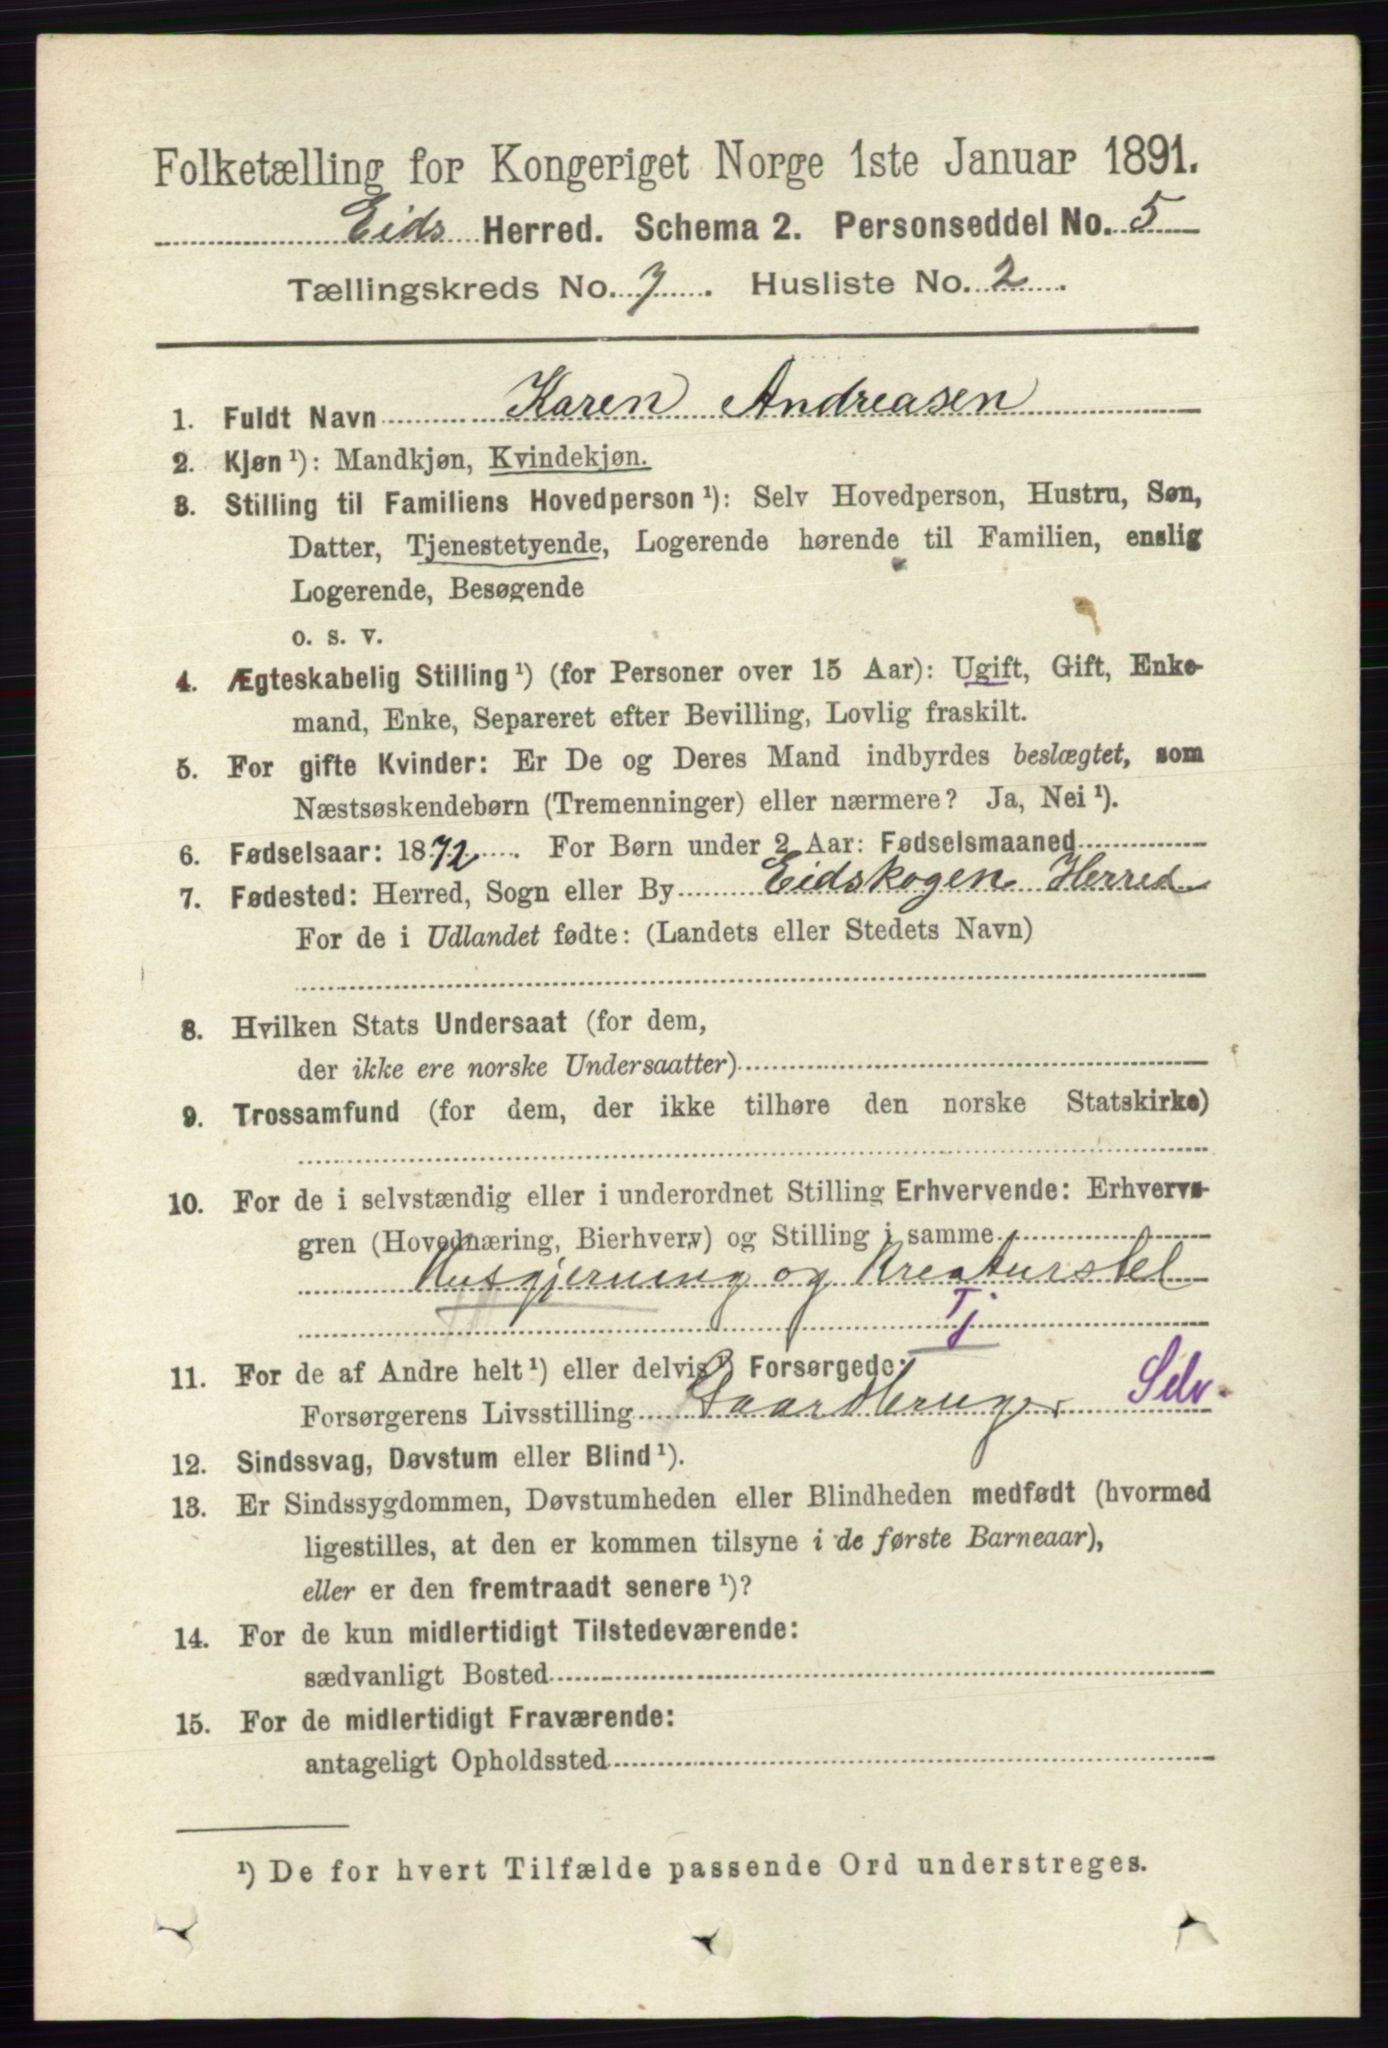 Folketælling for Kongeriget Norge 1ste Januar 1891.
Eids Herred. Schema 2. Personseddel No. 5
Tællingskreds No. 7. Husliste No. 2.
1. Fuldt Navn Karen Andreasen
2. Kjøn ¹): Mandkjøn, Kvindekjøn.
3. Stilling til Familiens Hovedperson ¹): Selv Hovedperson, Hustru, Søn,
Datter, Tjenestetyende, Logerende hørende til Familien, enslig
Logerende, Besøgende
o. s. v.
4. Ægteskabelig Stilling ¹) (for Personer over 15 Aar): Ugift, Gift, Enke-
mand, Enke, Separeret efter Bevilling, Lovlig fraskilt.
5. For gifte Kvinder: Er De og Deres Mand indbyrdes beslægtet, som
Næstsøskendebørn (Tremenninger) eller nærmere? Ja, Nei ¹).
6. Fødselsaar: 1872. For Børn under 2 Aar: Fødselsmaaned
7. Fødested: Herred, Sogn eller By Eidskogen Herred
For de i Udlandet fødte: (Landets eller Stedets Navn)
8. Hvilken Stats Undersaat (for dem,
der ikke ere norske Undersaatter)
9. Trossamfund (for dem, der ikke tilhøre den norske Statskirke)
10. For de i selvstændig eller i underordnet Stilling Erhvervende: Erhvervs-
gren (Hovednæring, Bierhverv) og Stilling i samme
Husgjerning og Kreaturstel
Tj
11. For de af Andre helt ¹) eller delvis ¹) Forsørgede:
Forsørgerens Livsstilling Gaardbruger Selv.
12. Sindssvag, Døvstum eller Blind ¹).
13. Er Sindssygdommen, Døvstumheden eller Blindheden medfødt (hvormed
ligestilles, at den er kommen tilsyne i de første Barneaar),
eller er den fremtraadt senere ¹)?
14. For de kun midlertidigt Tilstedeværende:
sædvanligt Bosted
15. For de midlertidigt Fraværende:
antageligt Opholdssted
¹) De for hvert Tilfælde passende Ord understreges.